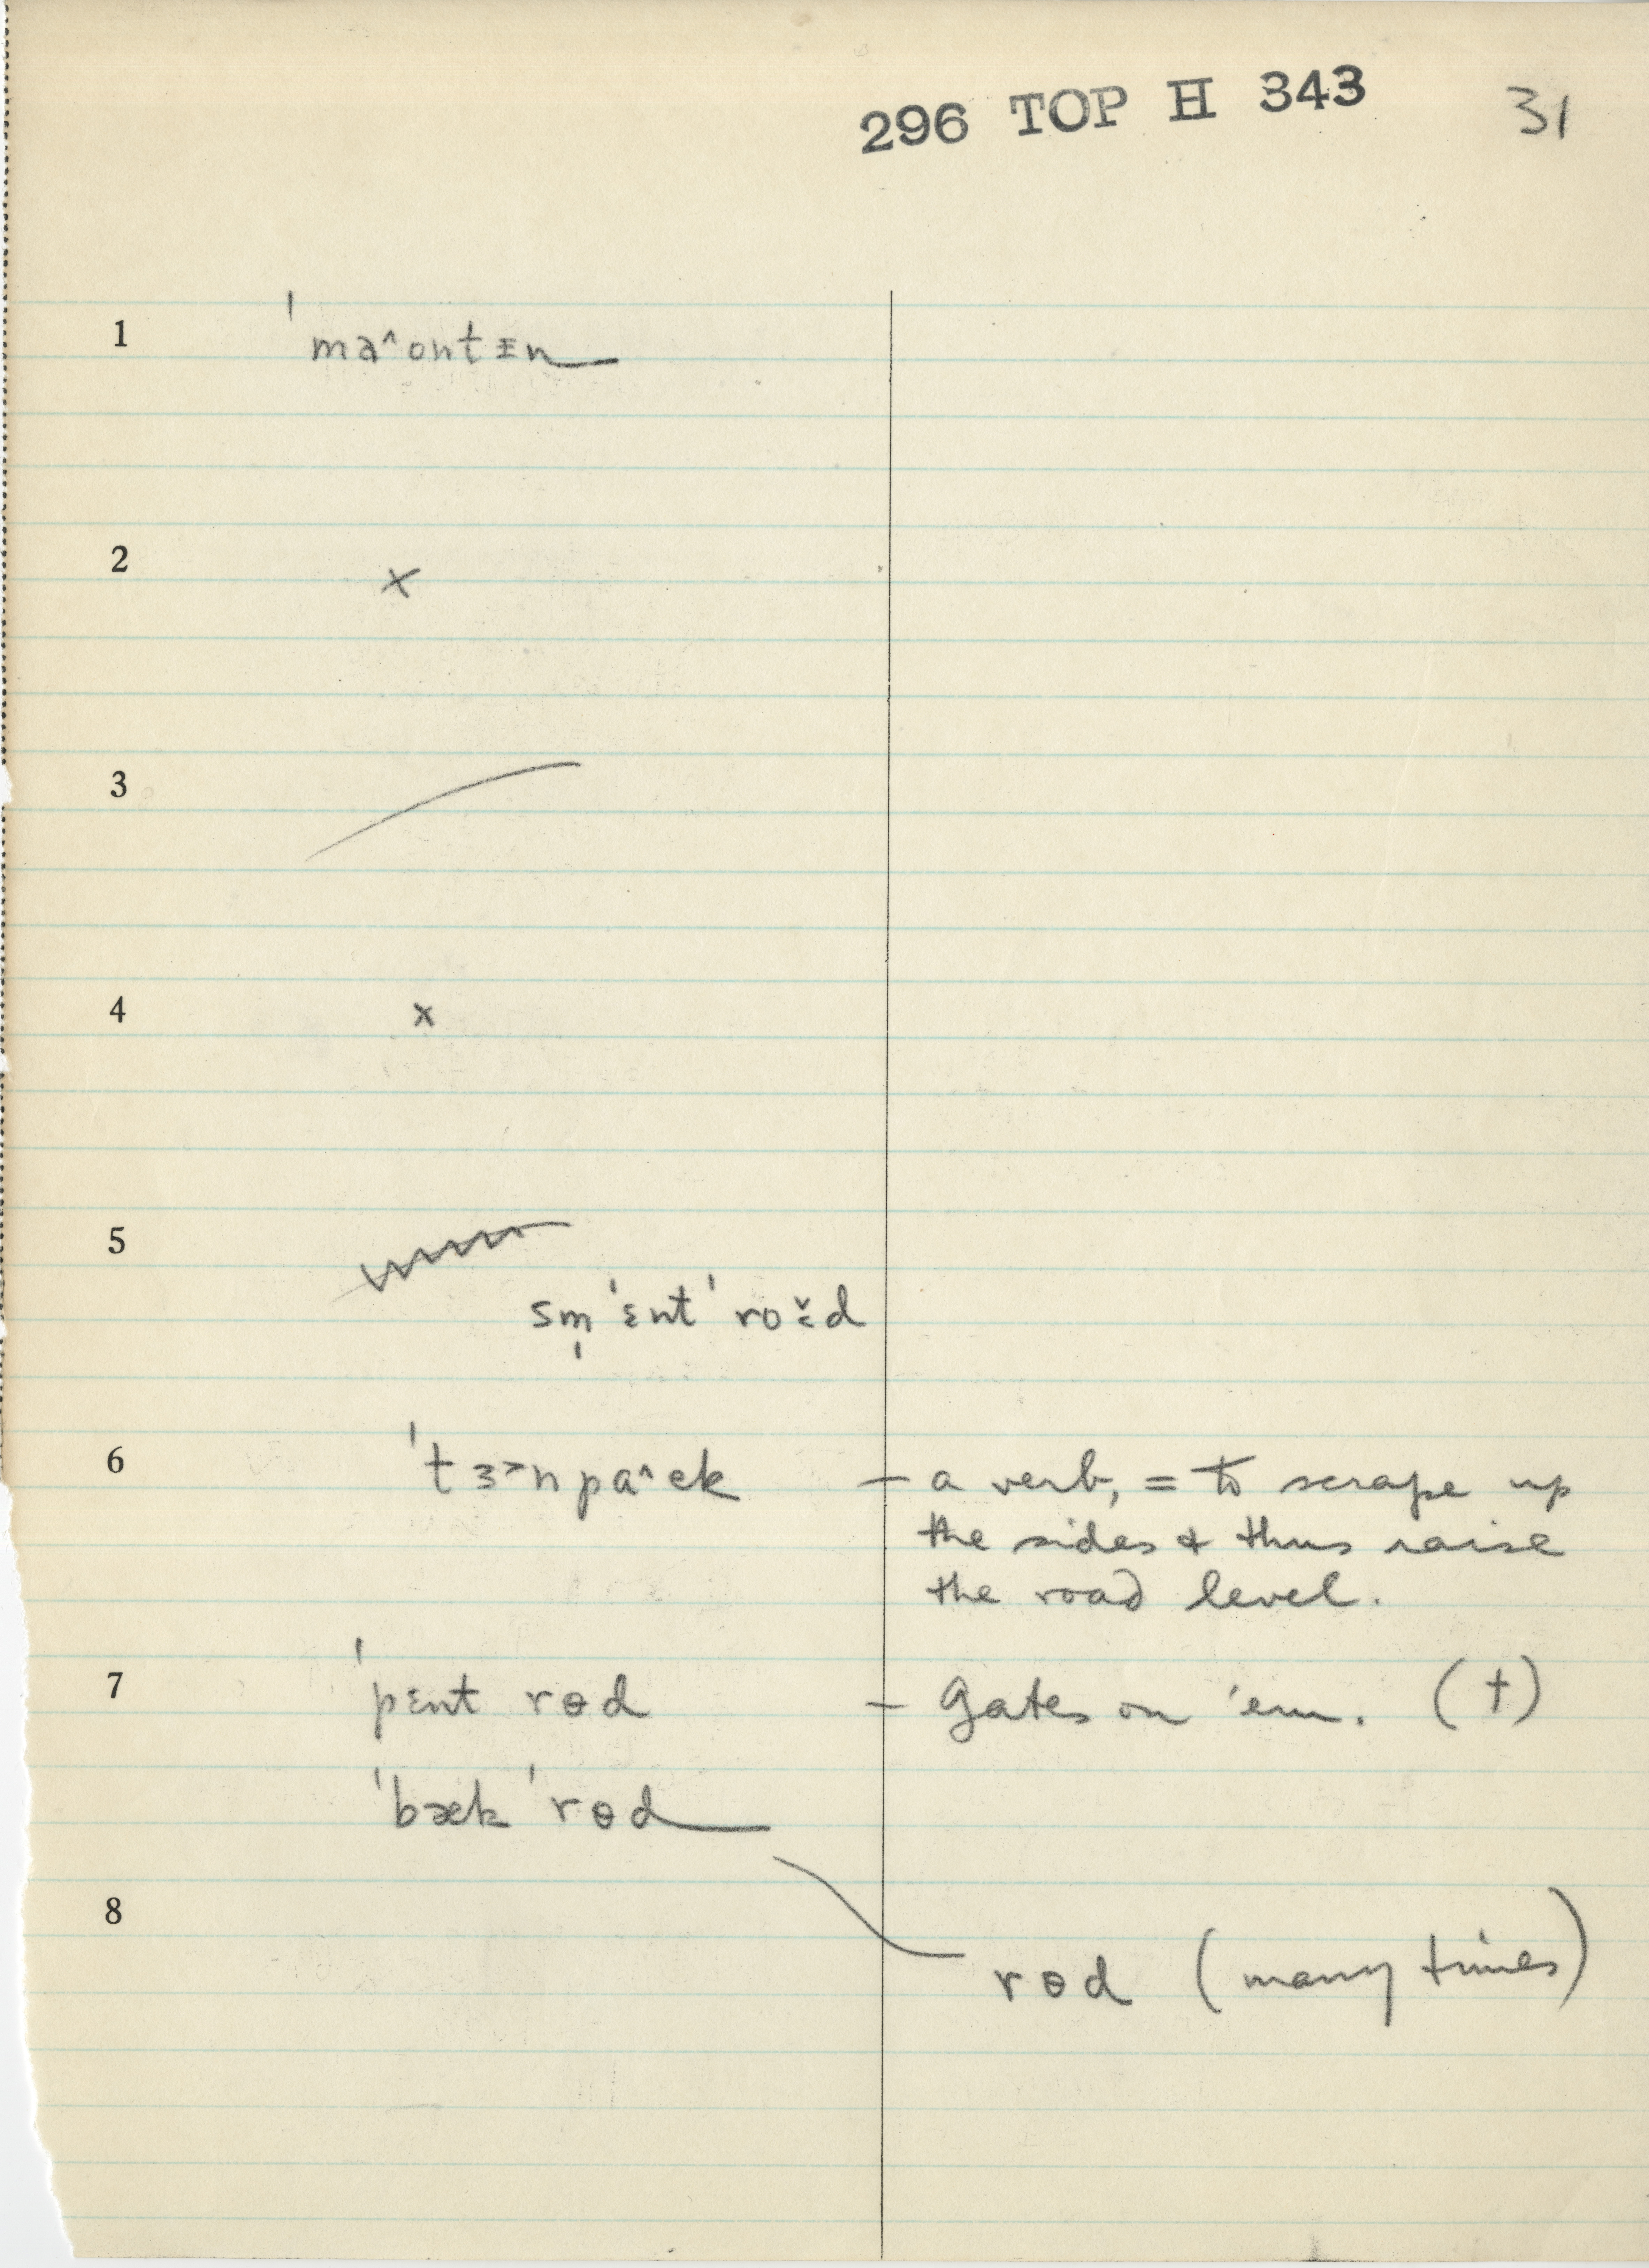 296 TOP H 343 31
1 ˈmaˆontɪn
2 x
3
4 x
5
sm̩ˈɛntˈroɛ̌d
6 ˈtɜ˃npaˆɛk — a verb, = to scrape up
the sides & thus raise
the road level.
7 ˈpɛnt rɵd — Gates on 'em. (†)
ˈbækˈrɵd
8
rɵd (many times)